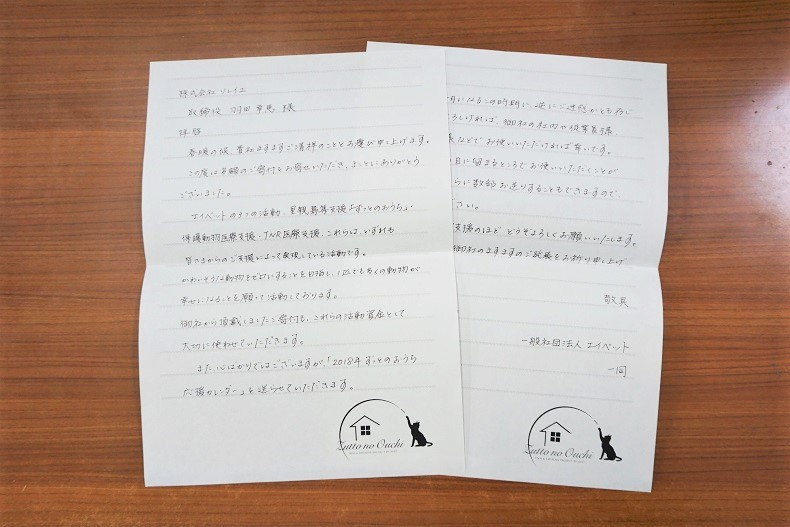 株式会社 ソレイユ
取締役 羽田 幸馬 様
拝啓
春暖の候、貴社ますますご清祥のこととお慶び申し上げます。
この度は多額のご寄付をお寄せいただき、まことにありがとう
ございました。
エイベットの3つの活動、里親募集支援「ずっとのおうち」、
保護動物医療支援・TNR医療支援、これらは、いずれも
皆さまからのご支援によって実現している活動です。
かわいそうな動物をゼロにすることを目指し、1匹でも多くの動物が
幸せになることを願って活動しております。
御社から頂戴しましたご寄付も、これらの活動資金として
大切に使わせていただきます。
また、心ばかりではございますが、「2018年ずっとのおうち
応援カレンダー」を送らせていただきます。
Zutto no Ouchi
月になるこの時期に、逆にご迷惑かとも存じ
ろしければ、御社の社内や従業員様、
などでお使いいただければ幸いです。
目に留まるところでお使いいただくことが
らに数部お送りすることもできますので
さい。
支援のほど どうぞよろしくお願いいたします。
御社のますますのご発展をお祈り申し上げ
敬具
一般社団法人 エイベット
一同
Zutto no Ouchi